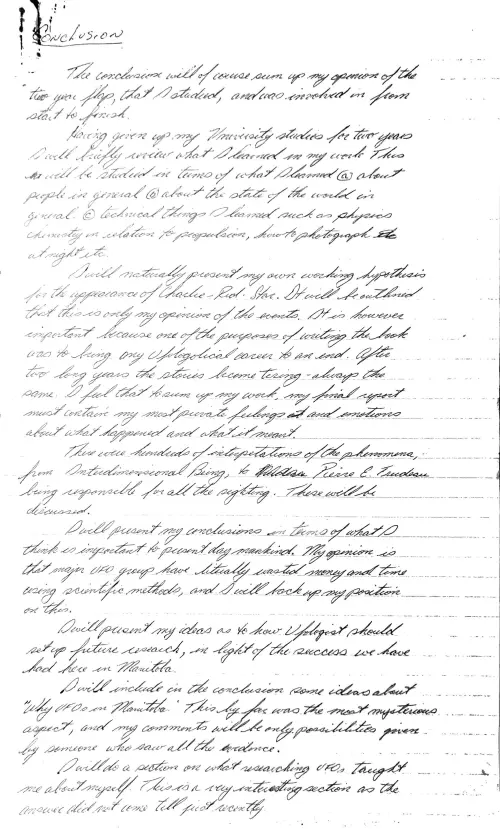 Conclusion
The conclusion will of course sum up my opinion of the
two year flap, that I studied, and was involved in from
start to finish.
Having given up my University studies for two years
I will briefly review what I learned in my work. This
will be studied in terms of what I learned (a) about
people in general (b) about the state of the world in
general. (c) technical things I learned such as physics
chemistry in relation to propulsion, how to photograph
at night etc.
I will naturally present my own working hypothesis
for the appearance of Charlie-Red-Star. It will be outlined
that this is only my opinion of the events. It is however
important because one of the purposes of writing the book
was to bring my Ufological career to an end. After
two long years the stories become tiring - always the
same. I feel that to sum up my work, my final report
must contain my most private feelings and emotions
about what happened and what it meant.
There were hundreds of interpitations of the phenmena,
from Interdimensional Being, to Pierre E. Trudeau
being responsible for all the sighting. These will be
discussed.
I will present my conclusions in terms of what I
think is important to present day mankind. My opinion is
that major UFO group have literally wasted money and time
using scientific methods, and I will back up my position
on this.
I will present my ideas as to how Ufologist should
set up future research, in light of the success we have
had here in Manitoba.
I will include in the conclusion some ideas about
"Why UFOs in Manitoba." This by far was the most mysterious
aspect, and my comments will be only possibilities given
by someone who saw all the evidence.
I will do a section on what researching UFOs taught
me about myself. This is a very interesting section as the
answer did not come till just recently